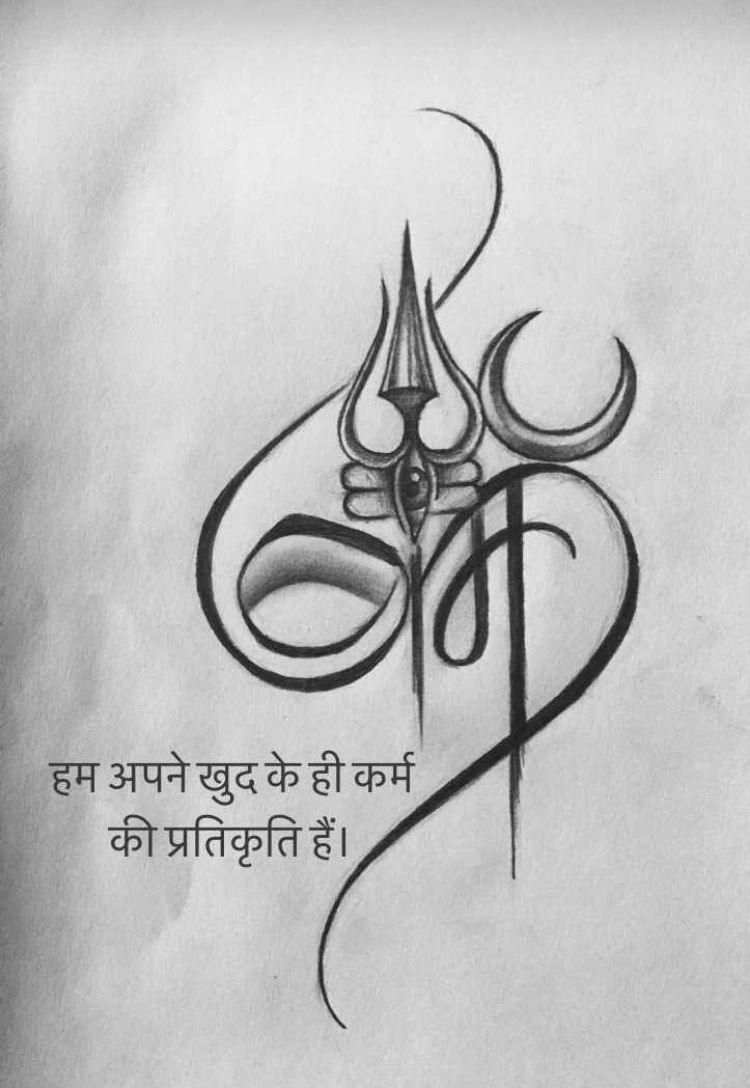 कर्म
हम अपने खुद के ही कर्म
की प्रतिकृति हैं।